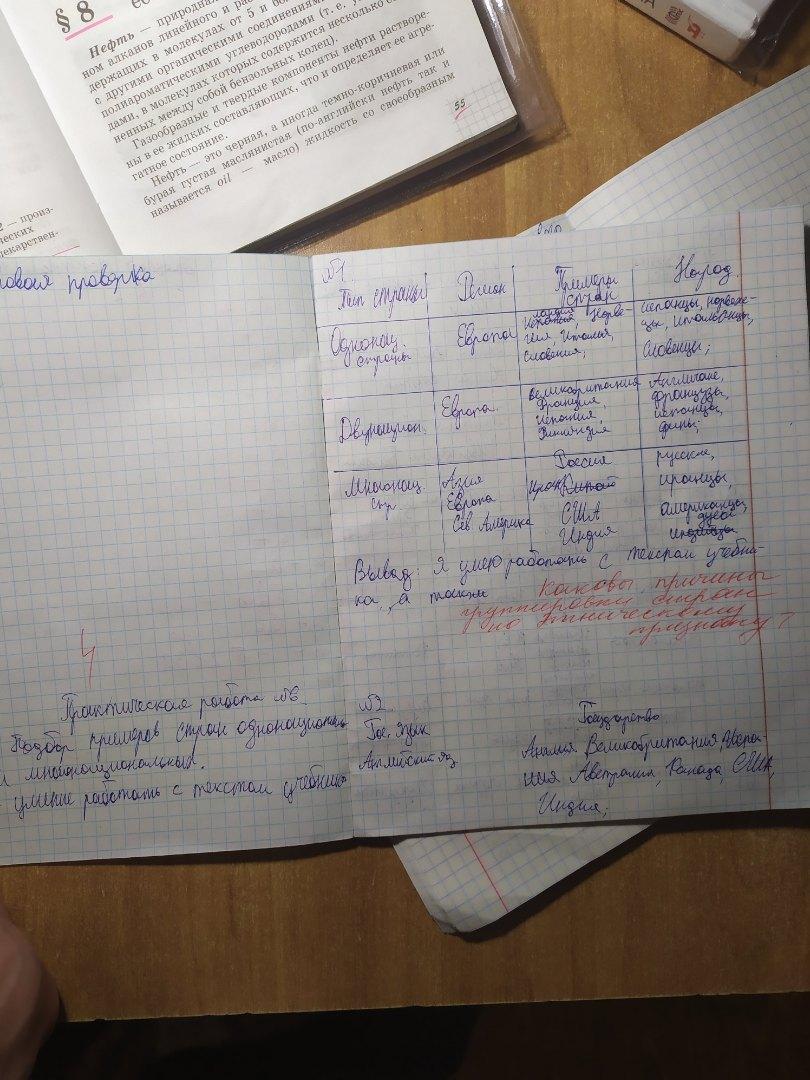 § 8
Нефть — природная
ном алканов линейного и раз
держащих в молекулах от 5 и бо
с другими органическими соединениями
полиароматическими углеводородами (т. е.
дами, в молекулах которых содержится несколько
ненных между собой бензольных колец).
Газообразные и твердые компоненты нефти растворе-
ны в ее жидких составляющих, что и определяет ее агре-
гатное состояние.
Нефть — это черная, а иногда темно-коричневая или
бурая густая маслянистая (по-английски нефть так и
называется oil — масло) жидкость со своеобразным
55
2 — произ-
ческих
лекарствен-
овая проверка
4
Практическая работа №6
Подбор примеров стран однонацион
и многонациональных.
умение работать с текстом учебник
№1
Тип страны Регион Примеры стран Народ
Однонац. страны Европа Испания, Норве-гия, Италия, Словения; испанцы, норвеж-цы, итальянцы, Словенцы;
Двунацион. Европа Великобритания Франция, Испания, Финляндия Англичане, французы, испанцы, фины;
Многонац. стр. Азия Европа Сев Америка Россия Иран Китай США Индия русские, иранцы, американцы,
Вывод: я умею работать с текстом учебни-
ка, а также
Каковы причины
группировки стран
по этническому
признаку?
№2
Гос. язык Государство
Английский яз. Англия Великобритания,
Австралия, Канада, США,
Индия;